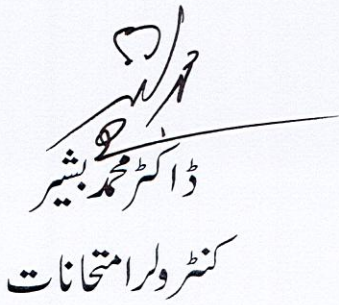 ڈاکٹر محمد بشیر
کنٹرولر امتحانات